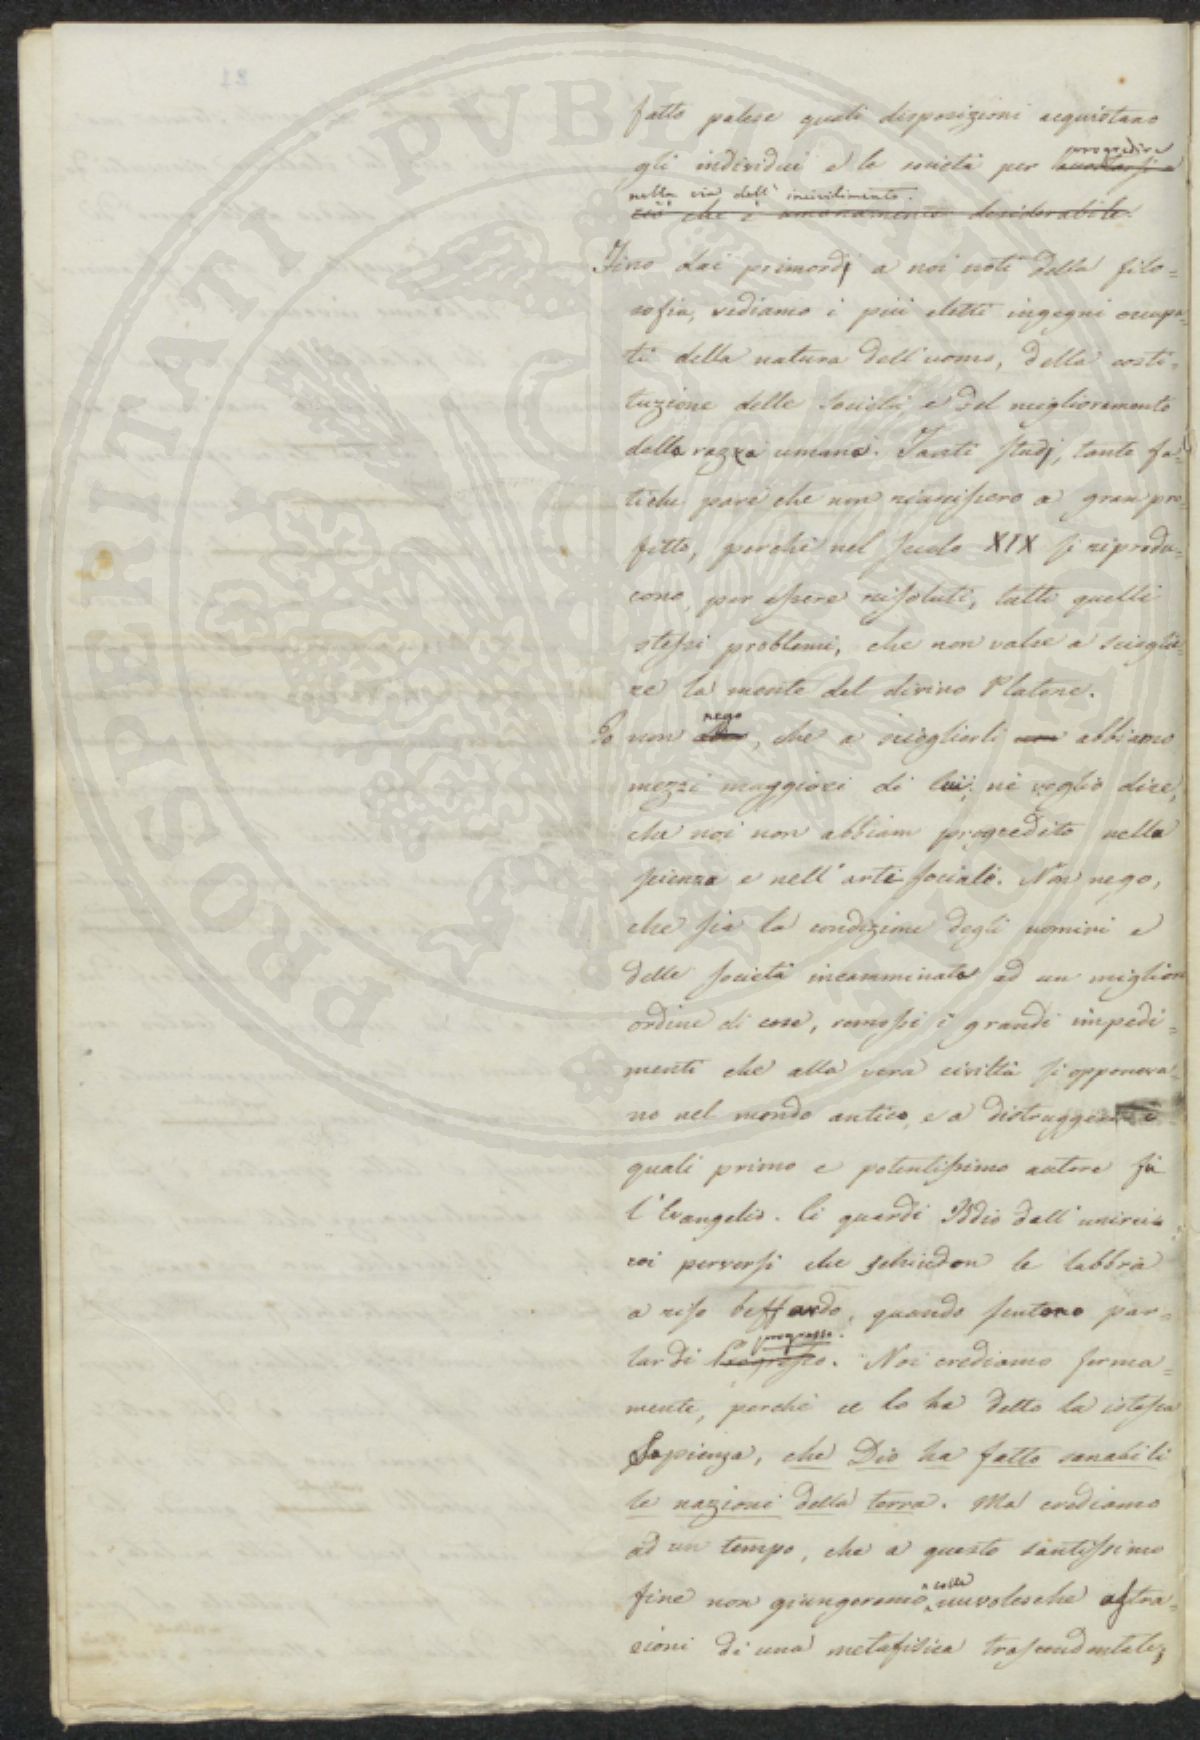 fatto palese quali disposizioni acquistano
gli individui e le società per progredire
nella via dell' incivilimento.
ciò che è umanamente desiderabile.
Fino dai primordj a noi noti della filo=
sofia, vediamo i più eletti ingegni occupa=
ti della natura dell'uomo, della costi=
tuzione delle Società, e del miglioramento
della razza umana. Tanti studj, tante fa=
tiche pare che non riuscissero a gran pro=
fitto, perchè nel secolo XIX si riprodu=
cono, per essere risoluti, tutti quelli
stessi problemi, che non valse a scioglie=
re la mente del divino Platone.
Io non nego, che a scioglierli non abbiamo
mezzi maggiori di lui; nè voglio dire,
che noi non abbiam progredito nella
scienza e nell'arte sociale. Non nego,
che sia la condizione degli uomini e
delle società incamminata ad un miglior
ordine di cose, remossi i grandi impedi=
menti che alla vera civiltà si opponeva=
no nel mondo antico, e a distruggere i
quali primo e potentissimo autore fu
l'Evangelio. Ci guardi Iddio dall'unirci a
coi perversi che schiudon le labbra
a riso beffardo, quando sentono par=
lar di Progresso progresso. Noi crediamo ferma=
mente, perchè ce lo ha detto la istessa
Sapienza, che Dio ha fatto sanabili
le nazioni della terra. Ma crediamo
ad un tempo, che a questo santissimo
fine non giungeremo colle nuvolesche astra=
zioni di una metafisica trascendentale;
PROSPERITATI PUBLICAE